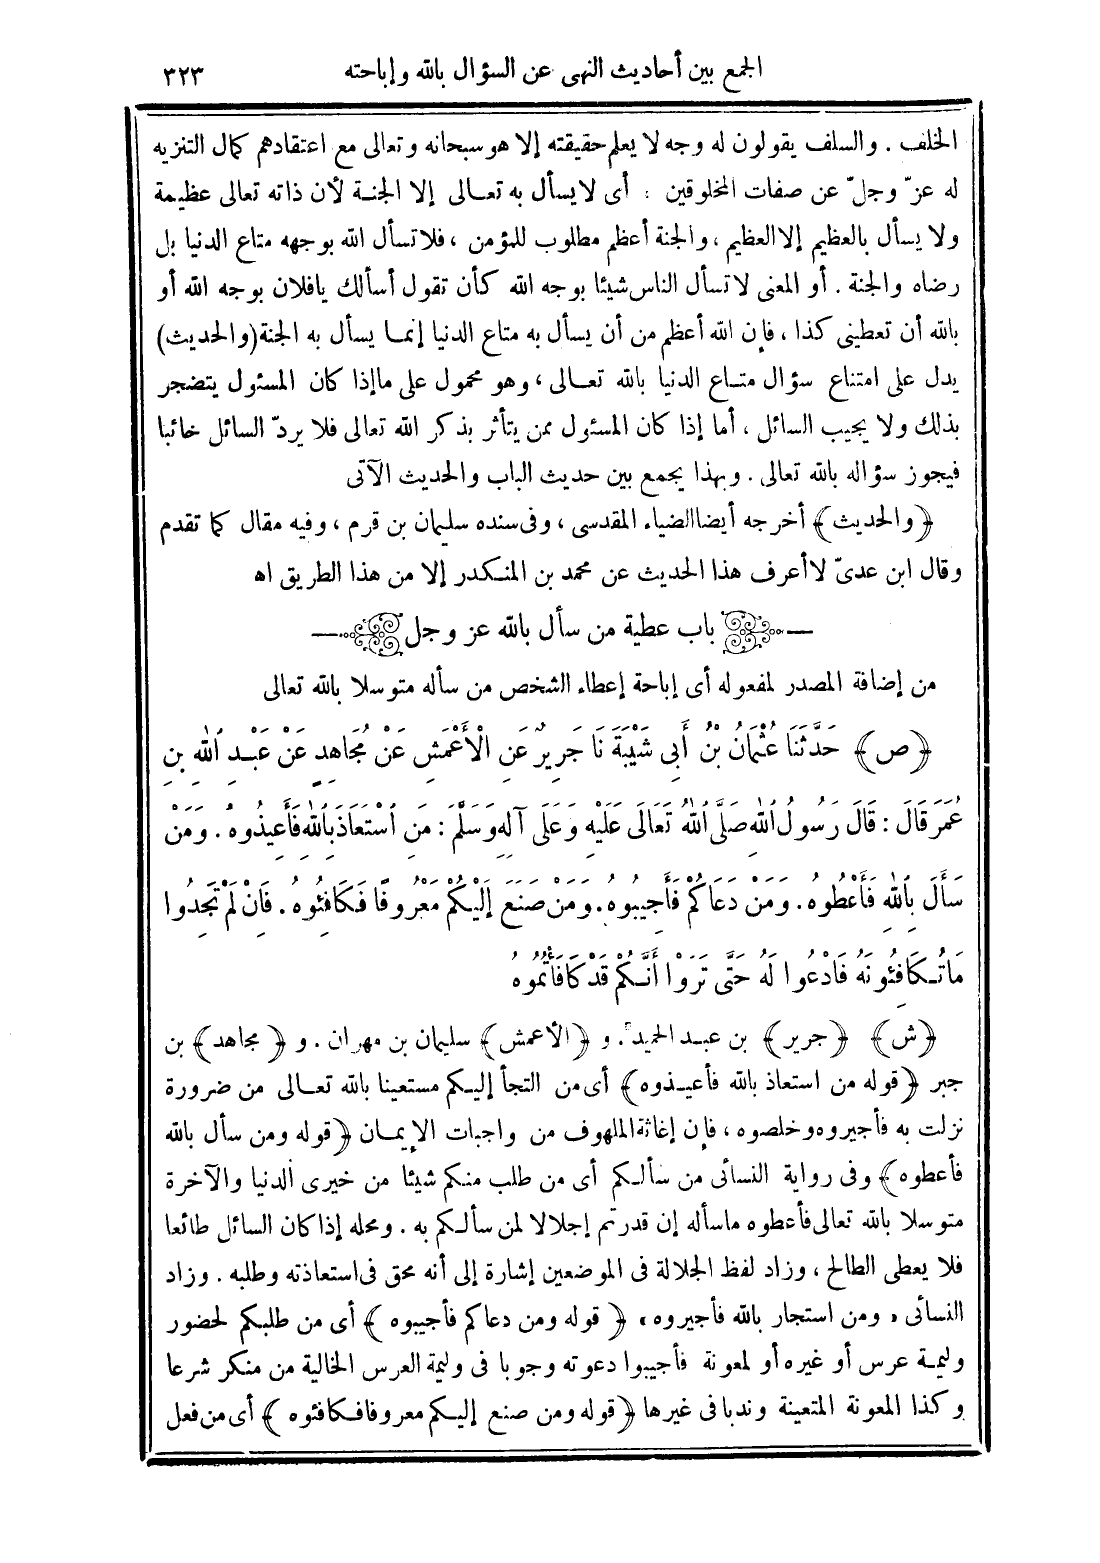 الجمع بين أحاديث النهى عن السؤال بالله وإباحته ٣٢٣
الخلف . والسلف يقولون له وجه لا يعلم حقيقته إلا هو سبحانه وتعالى مع اعتقادهم كمال التنزيه
له عزّ وجلّ عن صفات المخلوقين : أى لا يسأل به تعـالى إلا الجنـة لأن ذاته تعالى عظيمة
ولا يسأل بالعظيم إلا العظيم ، والجنة أعظم مطلوب للمؤمن ، فلا تسأل الله بوجهه متاع الدنيا بل
رضاه والجنة . أو المعنى لا تسأل الناس شيئا بوجه الله كأن تقول أسألك يافلان بوجه الله أو
بالله أن تعطينى كذا ، فإن الله أعظم من أن يسأل به متاع الدنيا إنمـا يسأل به الجنة (والحديث)
يدل على امتناع سؤال متـاع الدنيا بالله تعـالى ، وهو محمول على ماإذا كان المسئول يتضجر
بذلك ولا يجيب السائل ، أما إذا كان المسئول ممن يتأثر بذكر الله تعالى فلا يردّ السائل خائبا
فيجوز سؤاله بالله تعالى . وبهذا يجمع بين حديث الباب والحديث الآتى
﴿والحديث﴾ أخرجه أيضا الضياء المقدسى ، وفى سنده سليمان بن قرم ، وفيه مقال كما تقدم
وقال ابن عدىّ لا أعرف هذا الحديث عن محمد بن المنـكدر إلا من هذا الطريق اه
باب عطية من سأل بالله عز وجل
من إضافة المصدر لمفعوله أى إباحة إعطاء الشخص من سأله متوسلا بالله تعالى
﴿ص﴾ حَدَّثَنَا عُثْمَانُ بْنُ أَبِي شَيْبَةَ نَا جَرِيرٌ عَنِ الْأَعْمَشِ عَنْ مُجَاهِدٍ عَنْ عَبْـدِ اللهِ بْنِ
عُمَرَ قَالَ : قَالَ رَسُولُ اللهِ صَلَّى اللهُ تَعَالَى عَلَيْهِ وَعَلَى آلِهِ وَسَلَّمَ : مَنِ اسْتَعَاذَ بِاللهِ فَأَعِيذُوهُ . وَمَنْ
سَأَلَ بِاللهِ فَأَعْطُوهُ . وَمَنْ دَعَاكُمْ فَأَجِيبُوهُ . وَمَنْ صَنَعَ إِلَيْكُمْ مَعْرُوفًا فَكَافِئُوهُ . فَإِنْ لَمْ تَجِدُوا
مَا تُـكَافِئُونَهُ فَادْعُوا لَهُ حَتَّى تَرَوْا أَنَّـكُمْ قَدْ كَافَأْتُمُوهُ
﴿ش﴾ ﴿جرير﴾ بن عبـد الحميد . و ﴿الأعمش﴾ سليمان بن مهران . و ﴿مجاهد﴾ بن
جبر ﴿قوله من استعاذ بالله فأعيـذوه﴾ أى من التجأ إليـكم مستعينا بالله تعـالى من ضرورة
نزلت به فأجيروه وخلصوه ، فإن إغاثة الملهوف من واجبات الإيمـان ﴿قوله ومن سأل بالله
فأعطوه﴾ وفى رواية النسائى من سألـكم أى من طلب منكم شيئا من خيرى الدنيا والآخرة
متوسلا بالله تعالى فأعطوه ماسأله إن قدرتم إجلالا لمن سألـكم به . ومحله إذا كان السائل طائعا
فلا يعطى الطالح ، وزاد لفظ الجلالة فى الموضعين إشارة إلى أنه محق فى استعاذته وطلبه . وزاد
النسائى « ومن استجار بالله فأجيروه » ﴿قوله ومن دعاكم فأجيبوه﴾ أى من طلبكم لحضور
وليمـة عرس أو غيره أو لمعونة فأجيبوا دعوته وجوبا فى وليمة العرس الخالية من منكر شرعا
وكذا المعونة المتعينة وندبا فى غيرها ﴿قوله ومن صنع إليـكم معروفا فـكافئوه﴾ أى من فعل